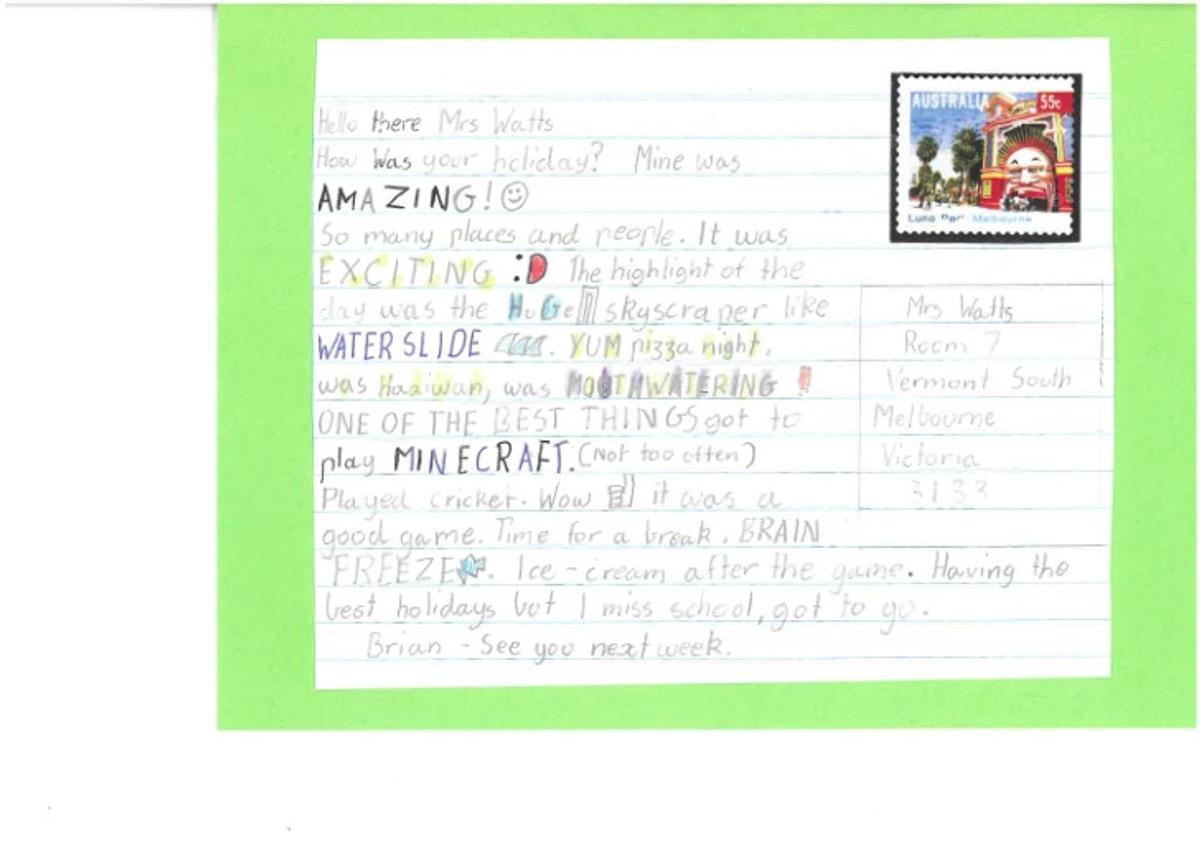 AUSTRALIA 55c
Luna Park Melbourne
Hello there Mrs Watts
How was your holiday? Mine was
AMAZING! ☺
So many places and people. It was
EXCITING :D The highlight of the
day was the HuGe skyscraper like
WATER SLIDE . YUM pizza night,
was Haziwan, was MOUTHWATERING !
ONE OF THE BEST THINGS got to
play MINECRAFT. (Not too often)
Played cricket. Wow it was a
good game. Time for a break. BRAIN
FREEZE . Ice-cream after the game. Having the
best holidays but I miss school, got to go.
Brian - See you next week.
Mrs Watts
Room 7
Vermont South
Melbourne
Victoria
3133